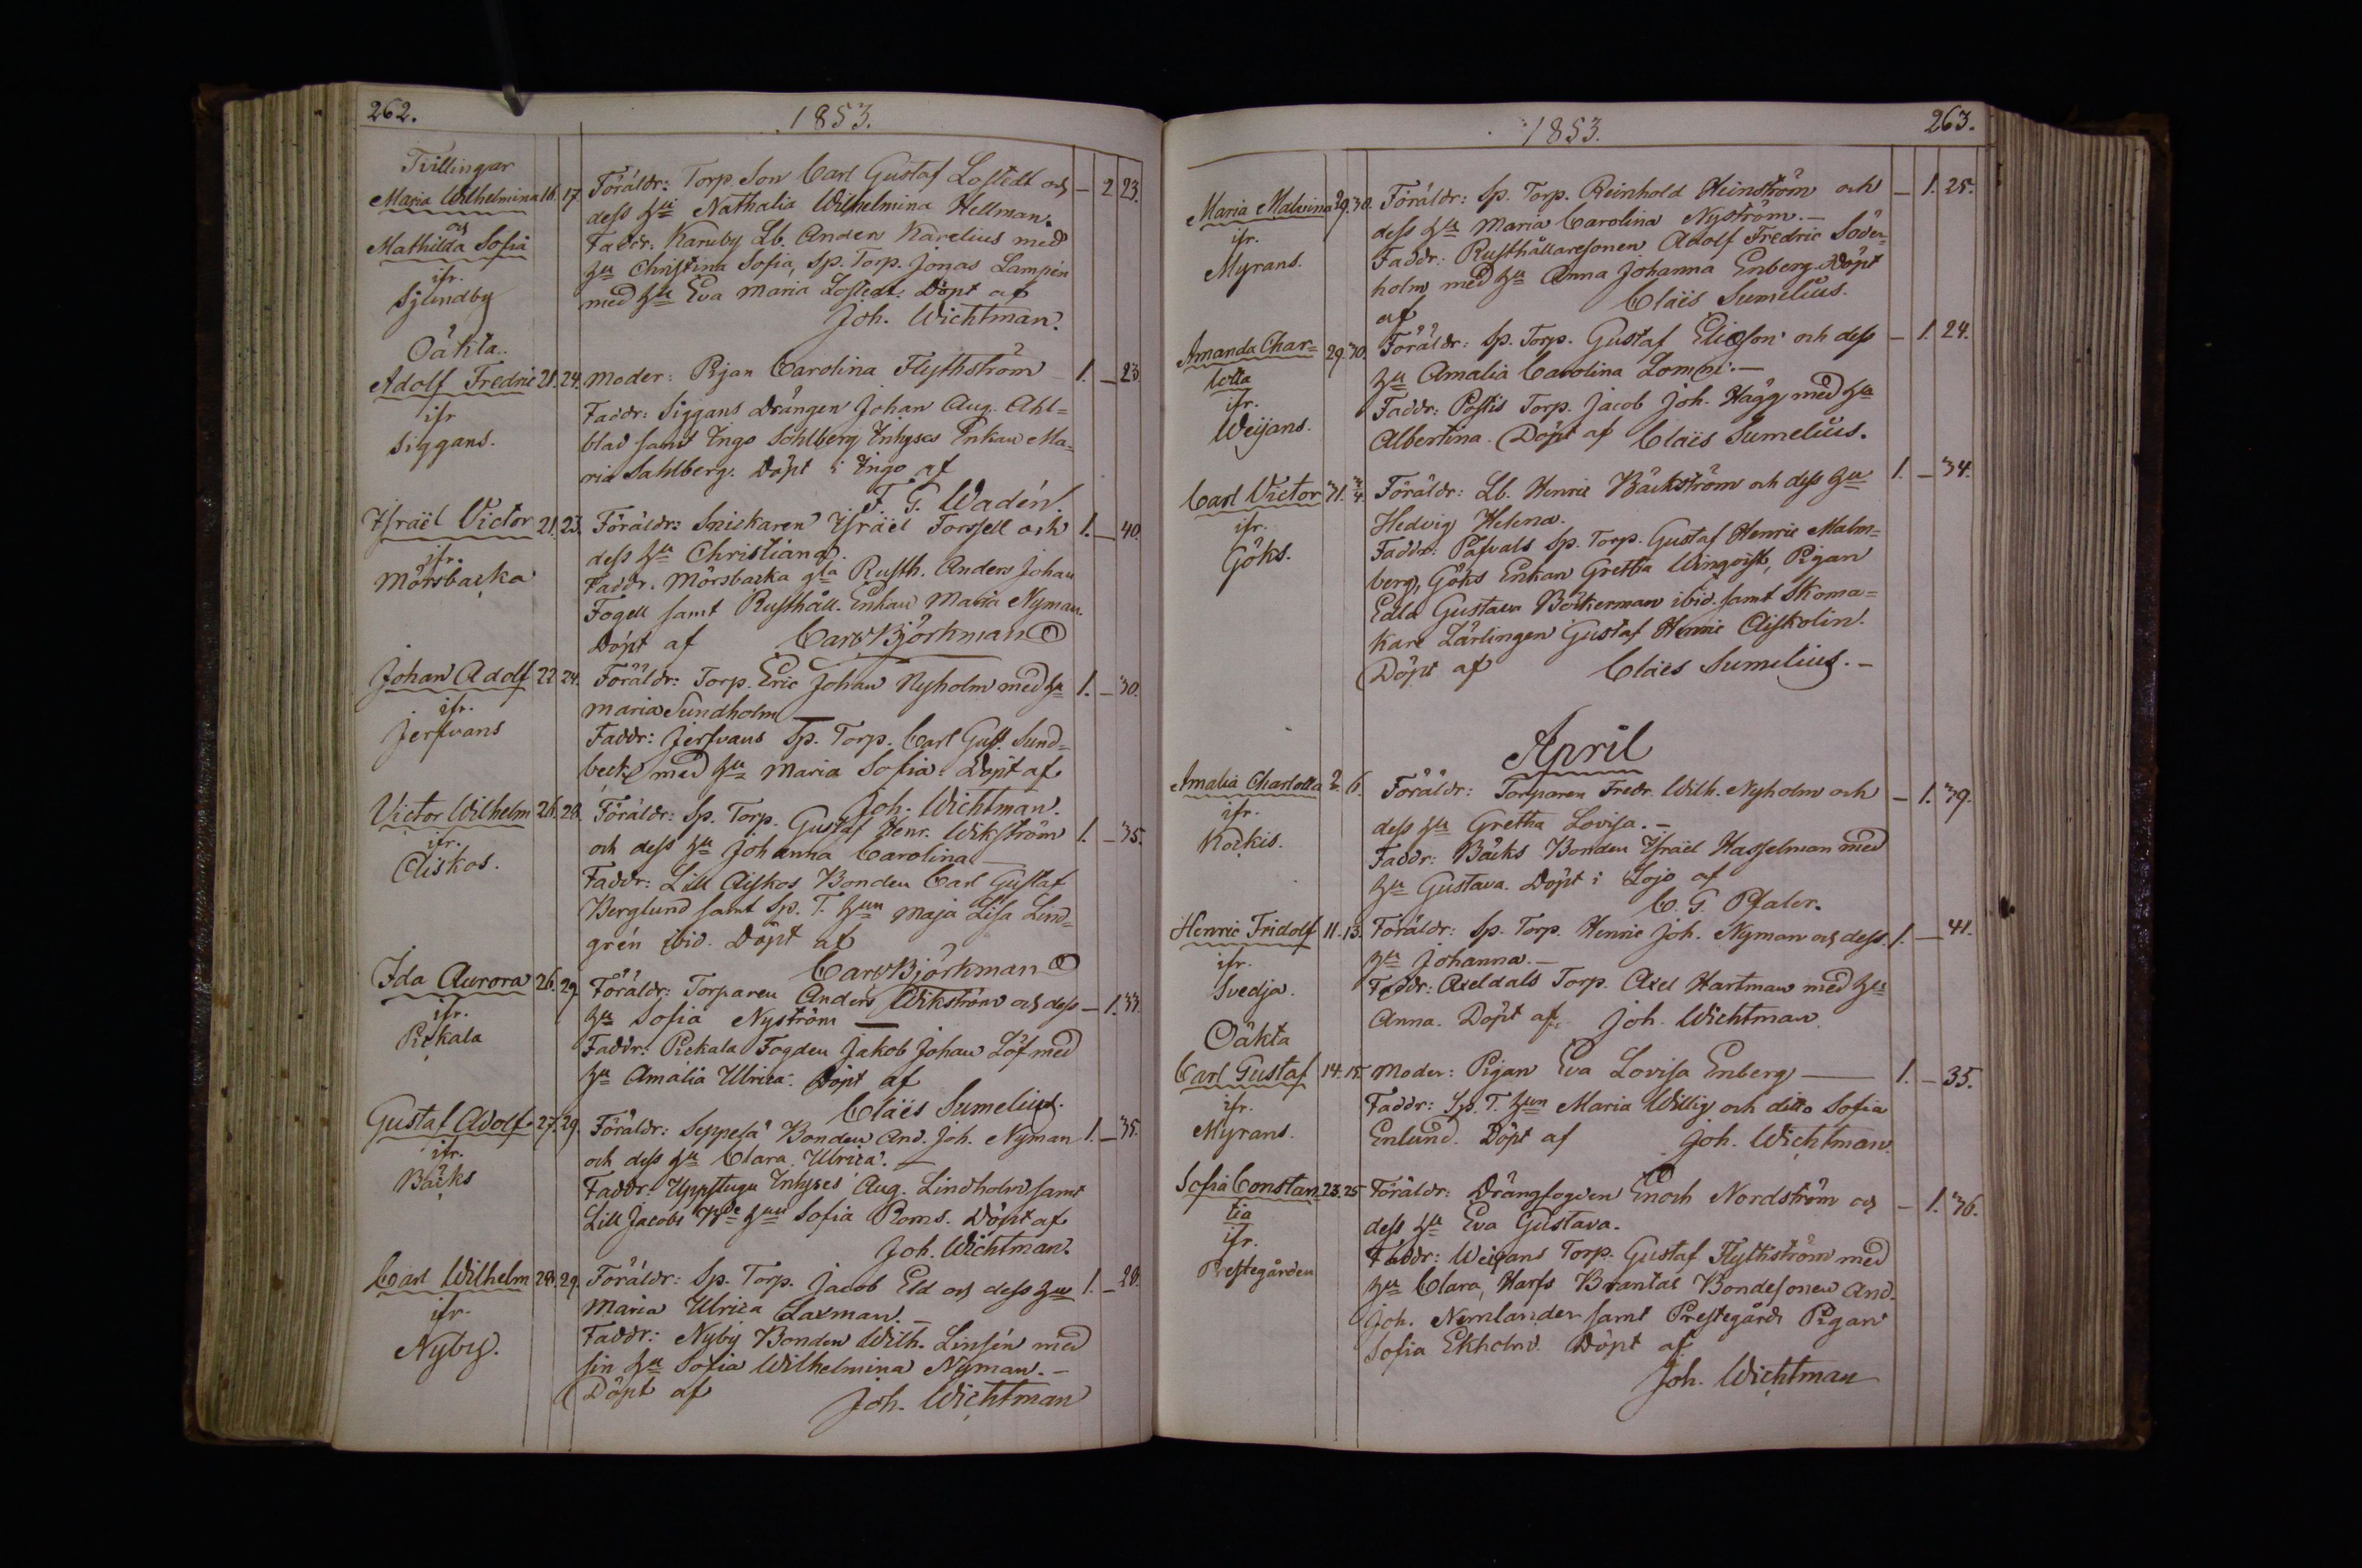 262.
1853.
Tvillingar
Maria Wilhelmina 16. 17. Föräldr: Torp. Son Carl Gustaf Lostedt och — 2 23.
och
dess hu Nathalia Wilhelmina Hellman.
Mathilda Sofia
Faddr: Karuby Lb. Anders Karelius med
ifr.
hu Christina Sofia, Sp. Torp. Jonas Lampén
Sjundby
med hu Eva Maria Lostedt. Döpt af
Joh. Wichtman.
Oäkta.
Adolf Fredric 21. 24. Moder: Pigan Carolina Flythström 1. — 23.
ifr
Faddr: Siggans Drängen Johan Aug. Ahl=
Siggans.
blad samt Ingo Sahlberg Inhyses Enkan Ma=
ria Sahlberg. Döpt i Ingo af
F. G. Wadén.
Israël Victor 21. 23. Föräldr: Snickaren Israël Forssell och 1. — 40.
ifr.
dess hu Christiana.
Mörsbacka
Faddr. Mörsbacka gla Rusth. Anders Johan
Fogell samt Rusthåll. Enkan Maria Nyman.
Döpt af Carl Björkman
Johan Adolf 22 24. Föräldr: Torp. Eric Johan Nyholm med hu 1. — 30.
ifr.
Maria Sundholm
Jerfvans
Faddr: Jerfvans Sp. Torp. Carl Gust. Sund=
beck med hu Maria Sofia. Döpt af
Joh. Wichtman.
Victor Wilhelm 26. 28. Föräldr: Sp. Torp. Gustaf Henr. Wikström 1. — 35.
ifr.
och dess hu Johanna Carolina —
Aiskos.
Faddr: Lill Aiskos Bonden Carl Gustaf
Berglund samt Sp. T. hun Maja Lisa Lind=
grén ibid. Döpt af
Carl Björkman
Ida Aurora 26. 29. Föräldr: Torparen Anders Wikström och dess — 1. 33.
ifr.
hu Sofia Nyström —
Pickala
Faddr: Pickala Fogden Jakob Johan Löf med
hu Amalia Ulrica. Döpt af
Claës Sumelius.
Gustaf Adolf 27. 29. Föräldr: Seppeså Bonden And. Joh. Nyman 1. — 35.
ifr.
och dess hu Clara Ulrica. —
Bäcks
Faddr: Uppstugu Inhyses Aug. Lindholm samt
Lill Jacobs Bde hun Sofia Roms. Döpt af
Joh. Wichtman.
Carl Wilhelm 28. 29. Föräldr: Sp. Torp. Jacob Eld och dess hu 1. — 28.
ifr.
Maria Ulrica Laxman. —
Nyby.
Faddr: Nyby Bonden Wilh. Linsén med
sin hu Sofia Wilhelmina Nyman. —
Döpt af Joh. Wichtman
1853.
263.
Maria Malvina 29. 30. Föräldr: Sp. Torp. Reinhold Heinström och — 1. 25.
ifr.
dess hu Maria Carolina Nyström. —
Myrans.
Faddr: Rusthållaresonen Adolf Fredric Söder=
holm med hu Anna Johanna Enberg. Döpt
af Claës Sumelius.
Amanda Char= 29. 30. Föräldr: Sp. Torp. Gustaf Eliasson och dess — 1. 24.
lotta
hu Amalia Carolina Lommi. —
ifr.
Faddr: Postis Torp. Jacob Joh. Hägg med hu
Weijans.
Albertina. Döpt af Claës Sumelius.
Carl Victor 31. 3/4. Föräldr: Lb. Henric Bäckström och dess hu 1. — 34.
ifr.
Hedvig Helena.
Göks.
Faddr: Påfvals Sp. Torp. Gustaf Henric Malm=
berg, Göks Enkan Gretha Winqvist, Pigan
Edla Gustava Böckerman ibid. samt Skoma=
kare Lärlingen Gustaf Henric Aiskolin.
Döpt af Claës Sumelius. —
April
Amalia Charlotta 2. 6. Föräldr: Torparen Fredr. Wilh. Nyholm och — 1. 39.
ifr.
dess hu Gretha Lovisa. —
Kockis.
Faddr: Bäcks Bonden Israël Hasselman med
hu Gustava. Döpt i Lojo af
C. G. Pfaler.
Henric Fridolf 11. 13. Föräldr: Sp. Torp. Henric Joh. Nyman och dess 1. — 41.
ifr.
hu Johanna. —
Svedja.
Faddr: Axeldals Torp. Axel Hartman med hu
Anna. Döpt af Joh. Wichtman
Oäkta
Carl Gustaf 14. 15. Moder: Pigan Eva Lovisa Enberg — 1. — 35.
ifr.
Faddr: Sp. T. hun Maria Willig och ditto Sofia
Myrans.
Enlund. Döpt af Joh. Wichtman.
Sofia Constan= 23. 25. Föräldr: Drängfogden Enoch Nordström och — 1. 36.
tia
dess hu Eva Gustava.
ifr.
Faddr: Weijans Torp. Gustaf Flythström med
Prestegården
hu Clara, Harfs Brantas Bondesonen And.
Joh. Nemlander samt Prestegårds Pigan
Sofia Ekholm. Döpt af
Joh. Wichtman